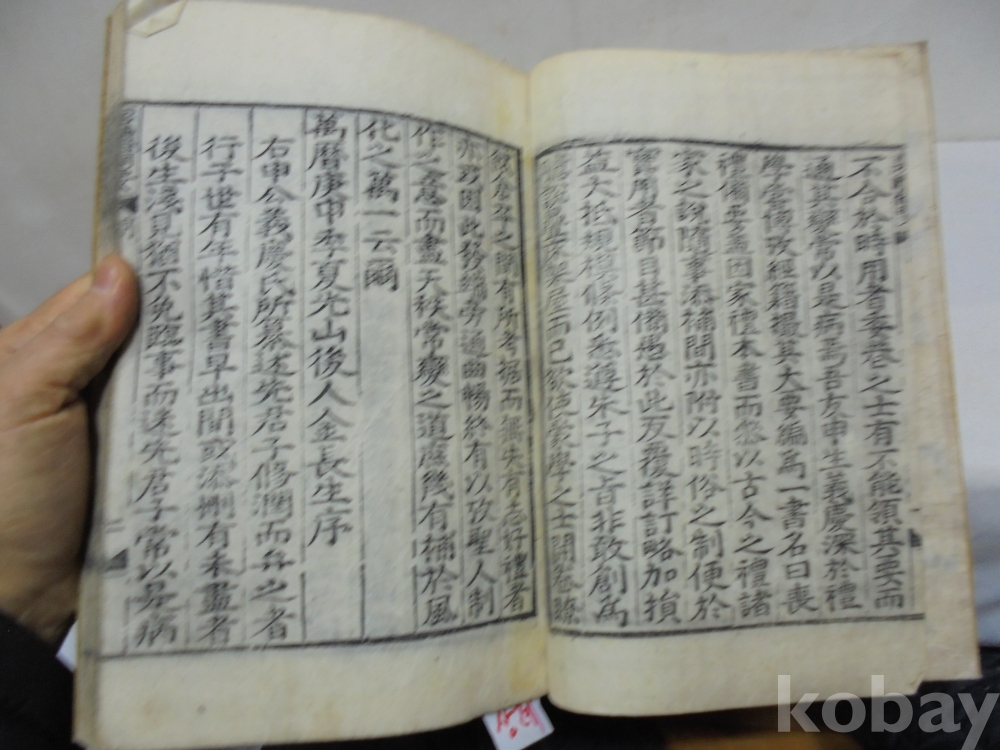 不合於時用者委巷之士有不能領其要而
通其變常以是病焉吾友申生義慶深於禮
學者博攷經籍撮其大要編爲一書名曰喪
禮備要盖因家禮本書而叅以古今之禮諸
家之說隨事添補間亦附以時俗之制便於
實用者節目甚備愚於此反覆詳訂略加損
益大抵規模條例悉遵朱子之旨非敢創爲
欲使蒙學之士開卷瞭
然於
之間有所考据而無失有志好禮者
亦或因此
旁通曲暢終有以攷聖人制
作之意而盡天秩常變之道庶幾有補於風
化之萬一云爾
萬曆庚申季夏光山後人金長生序
右申公義慶氏所纂述先君子修潤而弁之者
行于世有年惜其書早出間或添刪有未盡者
後生淺見猶不免臨事而眛先君子常以是病
kobay